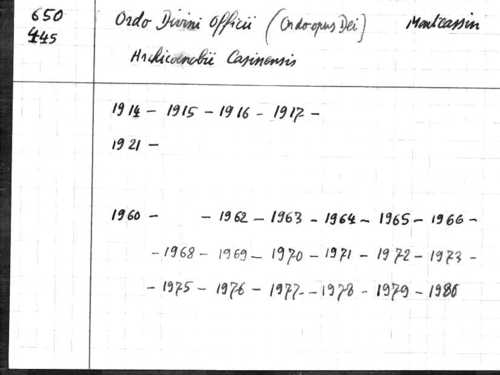 650 Ordo Divini Officii (Ordo opus Dei) Montcassin
445 Archicoenobii Casinensis
1914 - 1915 - 1916 - 1917 -
1921 -
1960 - - 1962 - 1963 - 1964 - 1965 - 1966 -
- 1968 - 1969 - 1970 - 1971 - 1972 - 1973 -
- 1975 - 1976 - 1977 - 1978 - 1979 - 1980